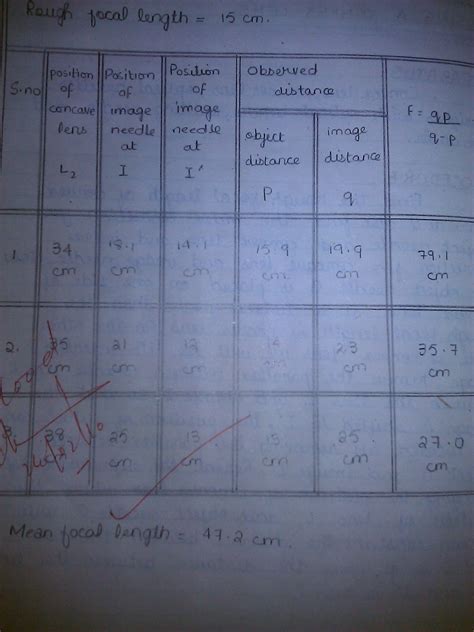 Rough focal length = 15 cm.
S.no
position of concave lens L₂
Position of image needle at I
Position of image needle at I'
Observed distance
object distance P
image distance q
F = qp / q-p
1. 34 cm 18.1 cm 14.1 cm 15.9 cm 19.9 cm 79.1 cm
2. 35 cm 21 cm 12 cm 14 cm 23 cm 35.7 cm
3. 38 cm 25 cm 13 cm 13 cm 25 cm 27.0 cm
Mean focal length = 47.2 cm.